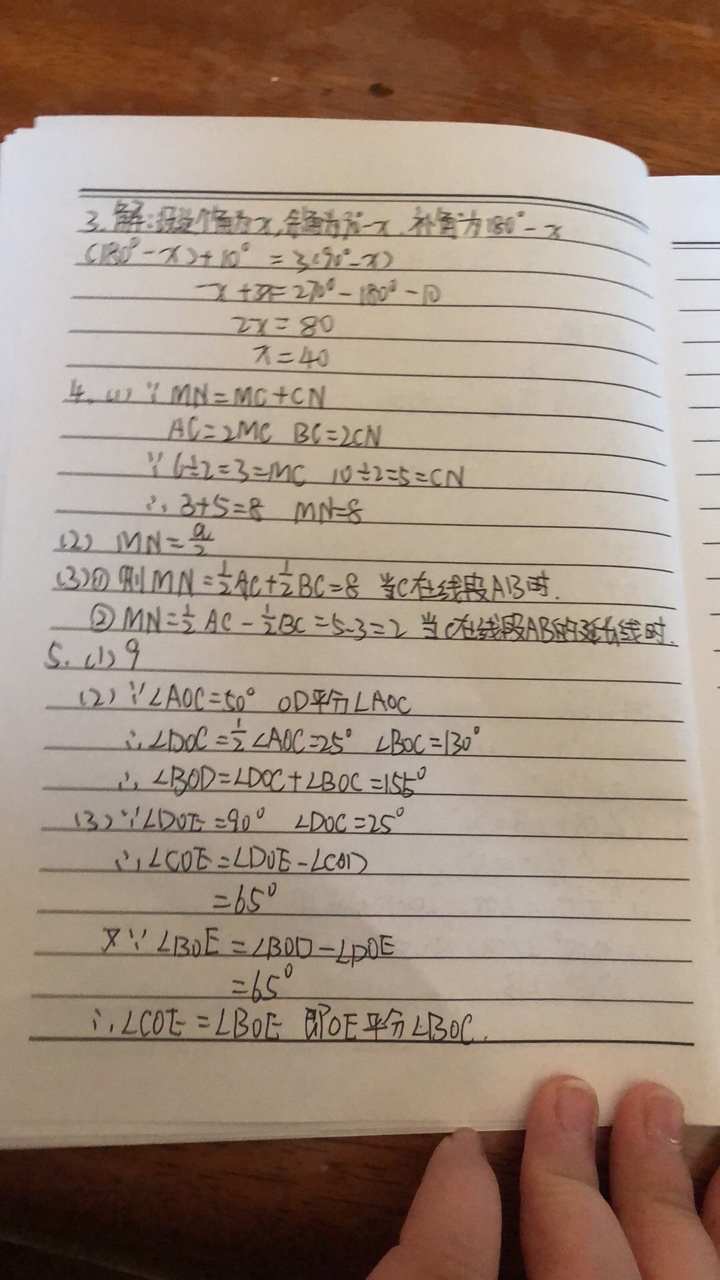 3. 解:设这个角为x,余角为90°-x,补角为180°-x
(180°-x)+10°=3(90°-x)
-x+3x=270°-180°-10
2x=80
x=40
4.(1)∵MN=MC+CN
AC=2MC BC=2CN
∵6÷2=3=MC 10÷2=5=CN
∴3+5=8 MN=8
(2) MN=a/2
(3)①则MN=½AC+½BC=8 当C在线段AB时.
②MN=½AC-½BC=5-3=2 当C在线段AB的延长线时.
5.(1)9
(2)∵∠AOC=50° OD平分∠AOC
∴∠DOC=½∠AOC=25° ∠BOC=130°
∴∠BOD=∠DOC+∠BOC=155°
(3)∵∠DOE=90° ∠DOC=25°
∴∠COE=∠DOE-∠COD
=65°
又∵∠BOE=∠BOD-∠DOE
=65°
∴∠COE=∠BOE 即OE平分∠BOC.